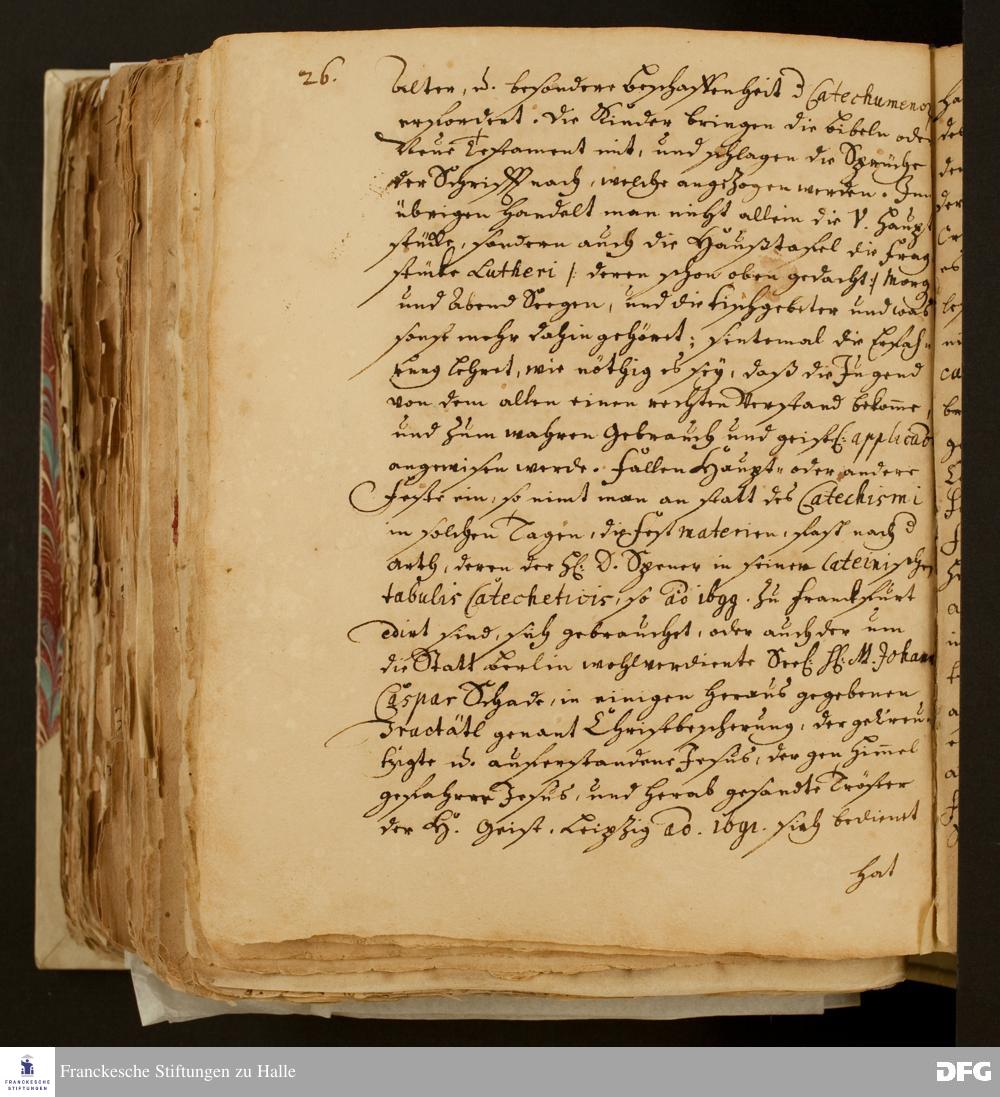 26.
Alter, u. besondere beschaffenheit d Catechumenor
erfordert. Die Kinder bringen die bibeln oder
Neue Testament mit, und schlagen die Sprüche
der Schrifft nach, welche angezogen werden. Im
übrigen handelt man nicht allein die V. Haupt
stücke, sondern auch die Haußtafel die Frag
stücke Lutheri /: deren schon oben gedacht :/ Morg
und Abend Seegen, und die tischgebeter und was
sonst mehr dahin gehöret; sintemal die Erfah-
rung lehret, wie nöthig es sey, daß die Jugend
von dem allen einen rechten Verstand bekom̅e,
und zum wahren Gebrauch und geistl: applicat
angewisen werde. Fallen Haupt- oder andere
Feste ein, so nimt man an statt des Catechismi
in solchen Tagen, die Fest materien, fast nach d
arth, deren der H: D. Spener in seinen Lateinischen
tabulis Catecheticis, so aō 1699. zu Franckfurt
edirt sind, sich gebrauchet, oder auch der um
die Statt Berlin wohlverdiente Seel: H: M. Johann
Caspar Schade, in einigen heraus gegebenen
Tractätl genant Christbescherung, der gekreu-
tzigte u. auferstandene Jesus, der gen Him̅el
gefahrne Jesus, und herab gesandte Tröster
der H. Geist. Leipzig ao. 1691. sich bedient
hat
FRANCKESCHE
STIFTUNGEN
Franckesche Stiftungen zu Halle
DFG